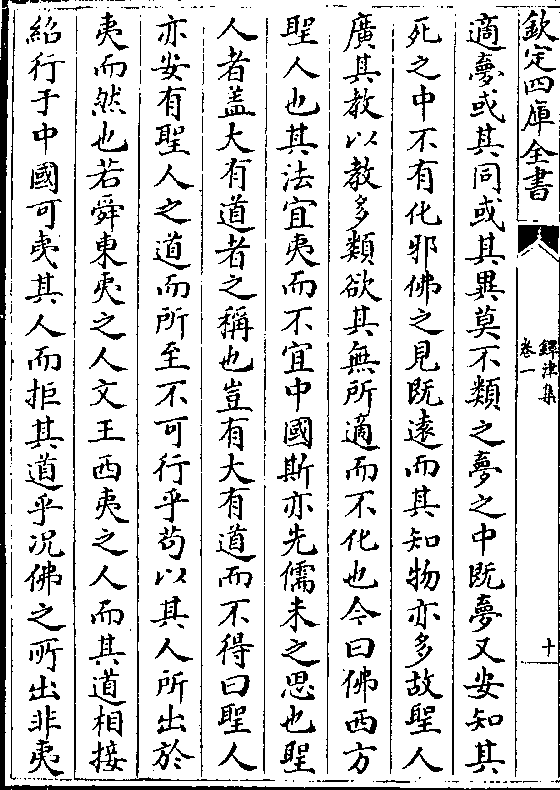 欽定四庫全書
鐔津集
卷一
十
適夢或其同或其異莫不類之夢之中既夢又安知其
死之中不有化邪佛之見既遠而其知物亦多故聖人
廣其教以教多類欲其無所適而不化也今曰佛西方
聖人也其法宜夷而不宜中國斯亦先儒未之思也聖
人者盖大有道者之稱也豈有大有道而不得曰聖人
亦安有聖人之道而所至不可行乎苟以其人所出於
夷而然也若舜東夷之人文王西夷之人而其道相接
紹行于中國可夷其人而拒其道乎况佛之所出非夷